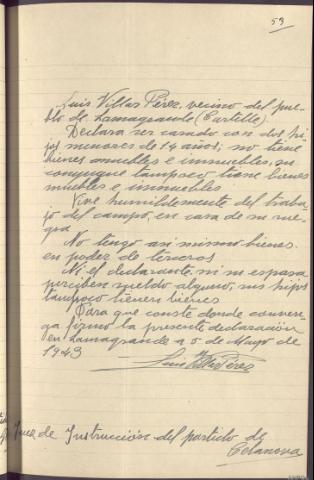 53
Luis Villas Pérez, vecino del pue-
blo de Lamagrande (Cartelle).
Declara ser casado con dos hi-
jos menores de 14 años; no tiene
bienes muebles e inmuebles, su
conyuge tampoco tiene bienes
muebles e inmuebles
Vive humildemente del traba-
jo del campo, en casa de su sue-
gra
No tengo asi mismo bienes
en poder de terceros
Ni el declarante, ni su esposa
perciben sueldo alguno, sus hijos
tampoco tienen bienes
Para que conste donde conven-
ga firmo la presente declaración
en Lamagrande a 5 de Mayo de
1943
Luis Pérez
Juez de Instrucción del partido de
Celanova